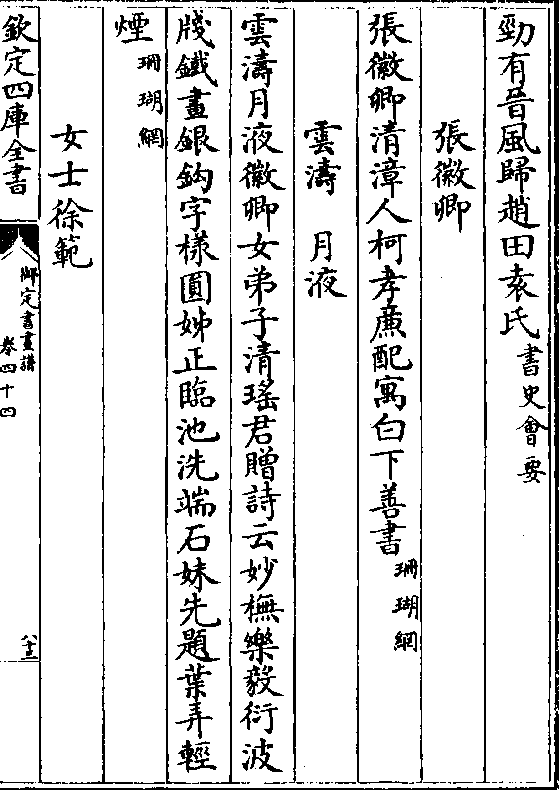 勁有晉風歸趙田袁氏書史會要
張徽卿
張徽卿清漳人柯孝廉配寓白下善書珊瑚網
雲濤　月液
雲濤月液徽卿女弟子清瑤君贈詩云妙橅樂毅衍波
牋鐵畫銀鈎字樣圓姊正臨池洗端石妹先題葉弄輕
煙珊瑚網
女士徐範
欽定四庫全書
御定書畫譜
卷四十四
八十三